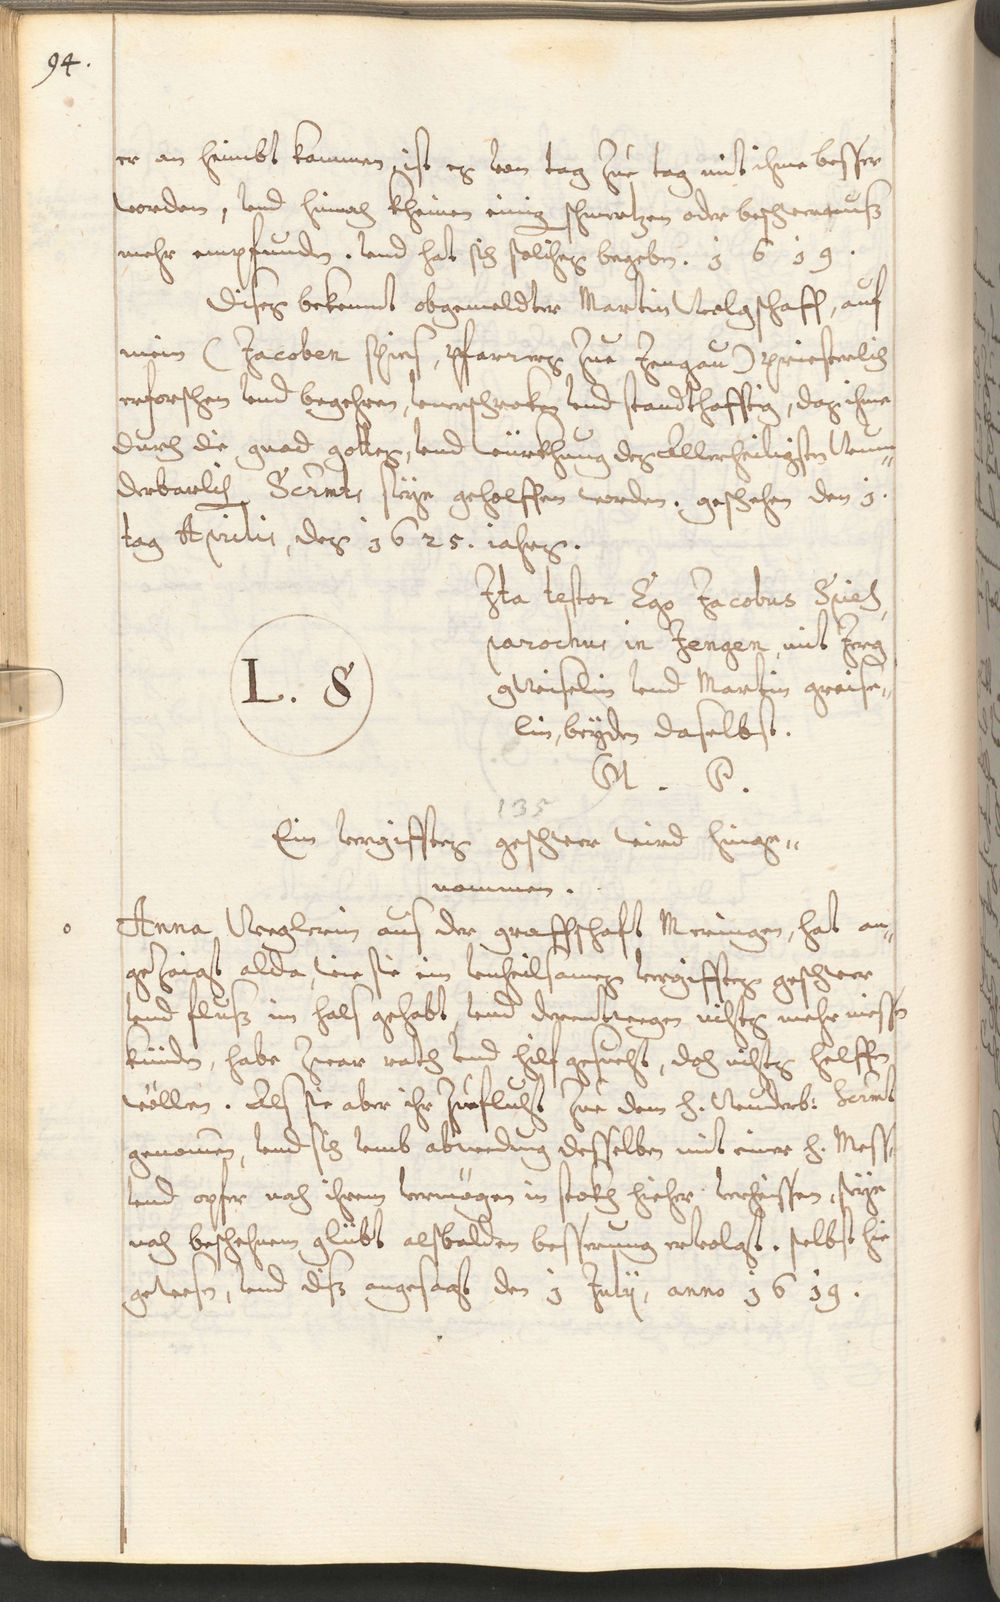 94.
er an heimbt kommen, ist es von tag zue tag mit ihme besser
worden, vnd hinnach kheinen einig schmertzen oder beschwernuß
mehr empfunden. vnd hat sich solches begeben. 1 6 19.
Dises bekennt obgemeldter Martin Volgschaff, auf
mein (Jacoben Spies, pfarrers zue Jengau) priesterlich
erforschen vnd begehren, vnerschroken vnd standthafftig, das ihme
durch die gnad gottes, vnd würkhung des Allerheiligsten Wun„
derbarlich Sacrmts seye geholffen worden. geschehen den 1.
tag Aprilis, des 1625. iahrs.
Ita testor Ego Jacobus Spies,
parochus in Jengen, mit Jerg
greiselin vnd Martin greise„
lin, beyden daselbst.
L. S
M. P.
135
Ein vergifftes geschwer wird hinge„
nommen.
Anna Veeglerin aus der graffschaft Meringen, hat an„
gezaigt alda, wie sie ein vnheilsames vergifftes geschwer
vnd fluß im hals gehabt, vnd derentwegen nichts mehr niessen
künden, habe zwar rath vnd hilf gesucht, doch nichts helffen
wöllen. Als sie aber ihr zueflucht zue dem h. Wunderb: Sacrmt
genomen, vnd sich vmb abwendung desselben mit einer h. Mess,
vnd opfer nach ihrem vermögen in stokh hieher verheissen, seye
nach beschehnem glübt alsbalden besserung ervolgt. selbst hie
gewesen, vnd diß angesagt den 1 July, anno 1619.